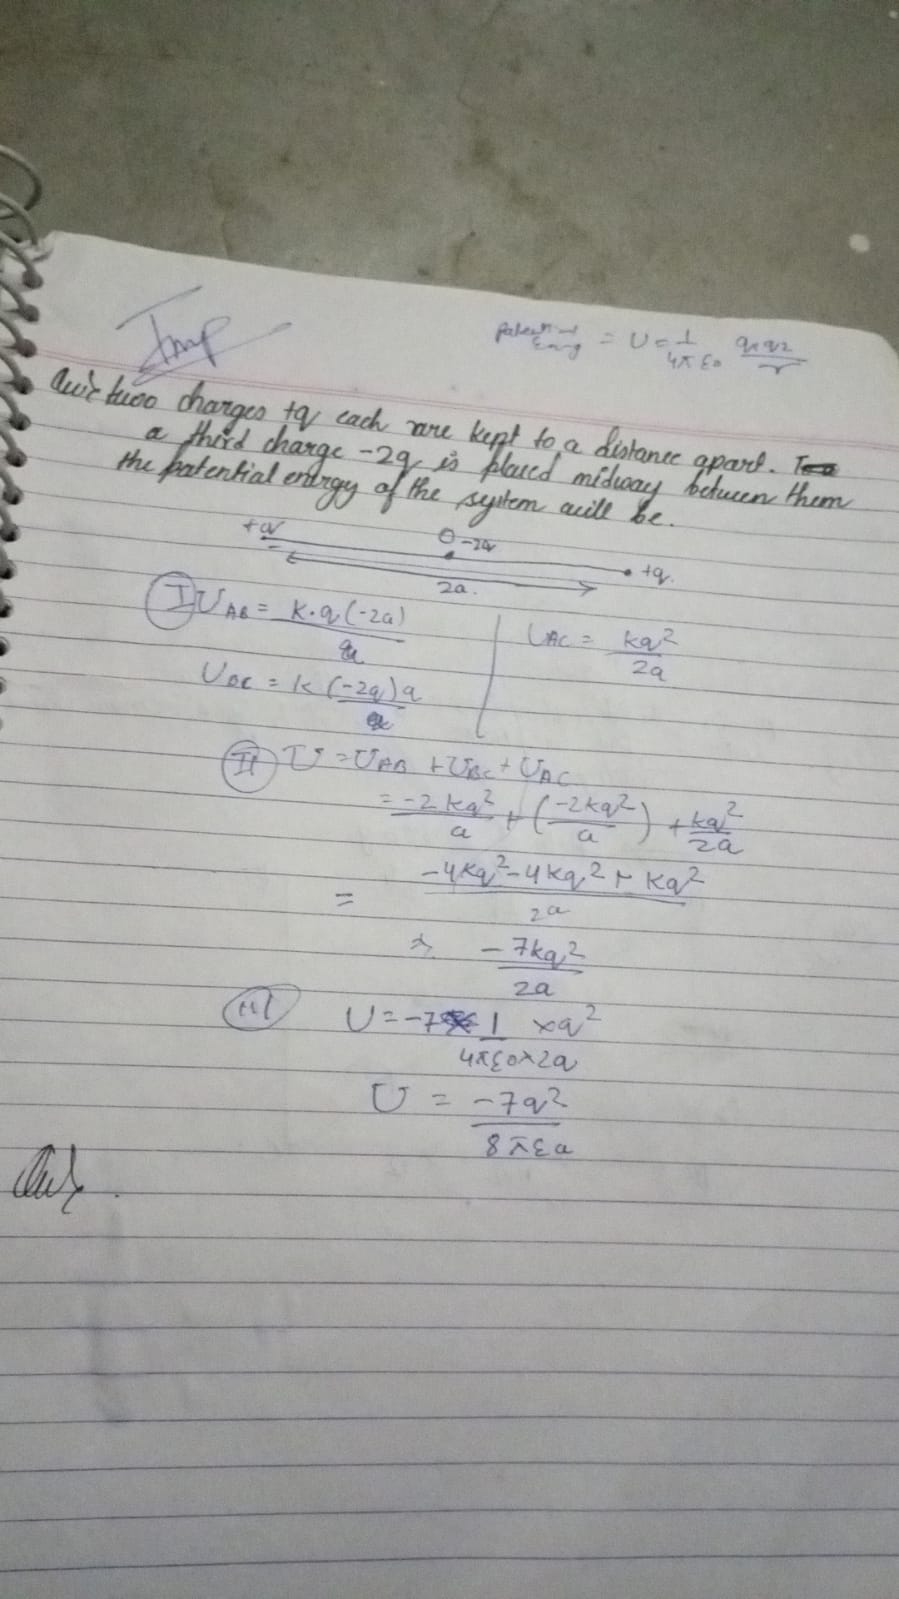 Imp
Potential Energy = U = 1/4πε0 q1q2/r
Que: two charges +q each are kept to a distance apart.
a third charge -2q is placed midway between them
the patential energy of the system will be.
+q -2q +q.
2a.
I UAB = K.q(-2q)/a
UAC = kq²/2a
UBC = k(-2q)q/a
II U = UAB + UBC + UAC
= -2kq²/a + (-2kq²/a) + kq²/2a
= -4kq²-4kq²+kq²/2a
⇒ -7kq²/2a
III U = -7 1/4πε0×2a ×q²
U = -7q²/8πεa